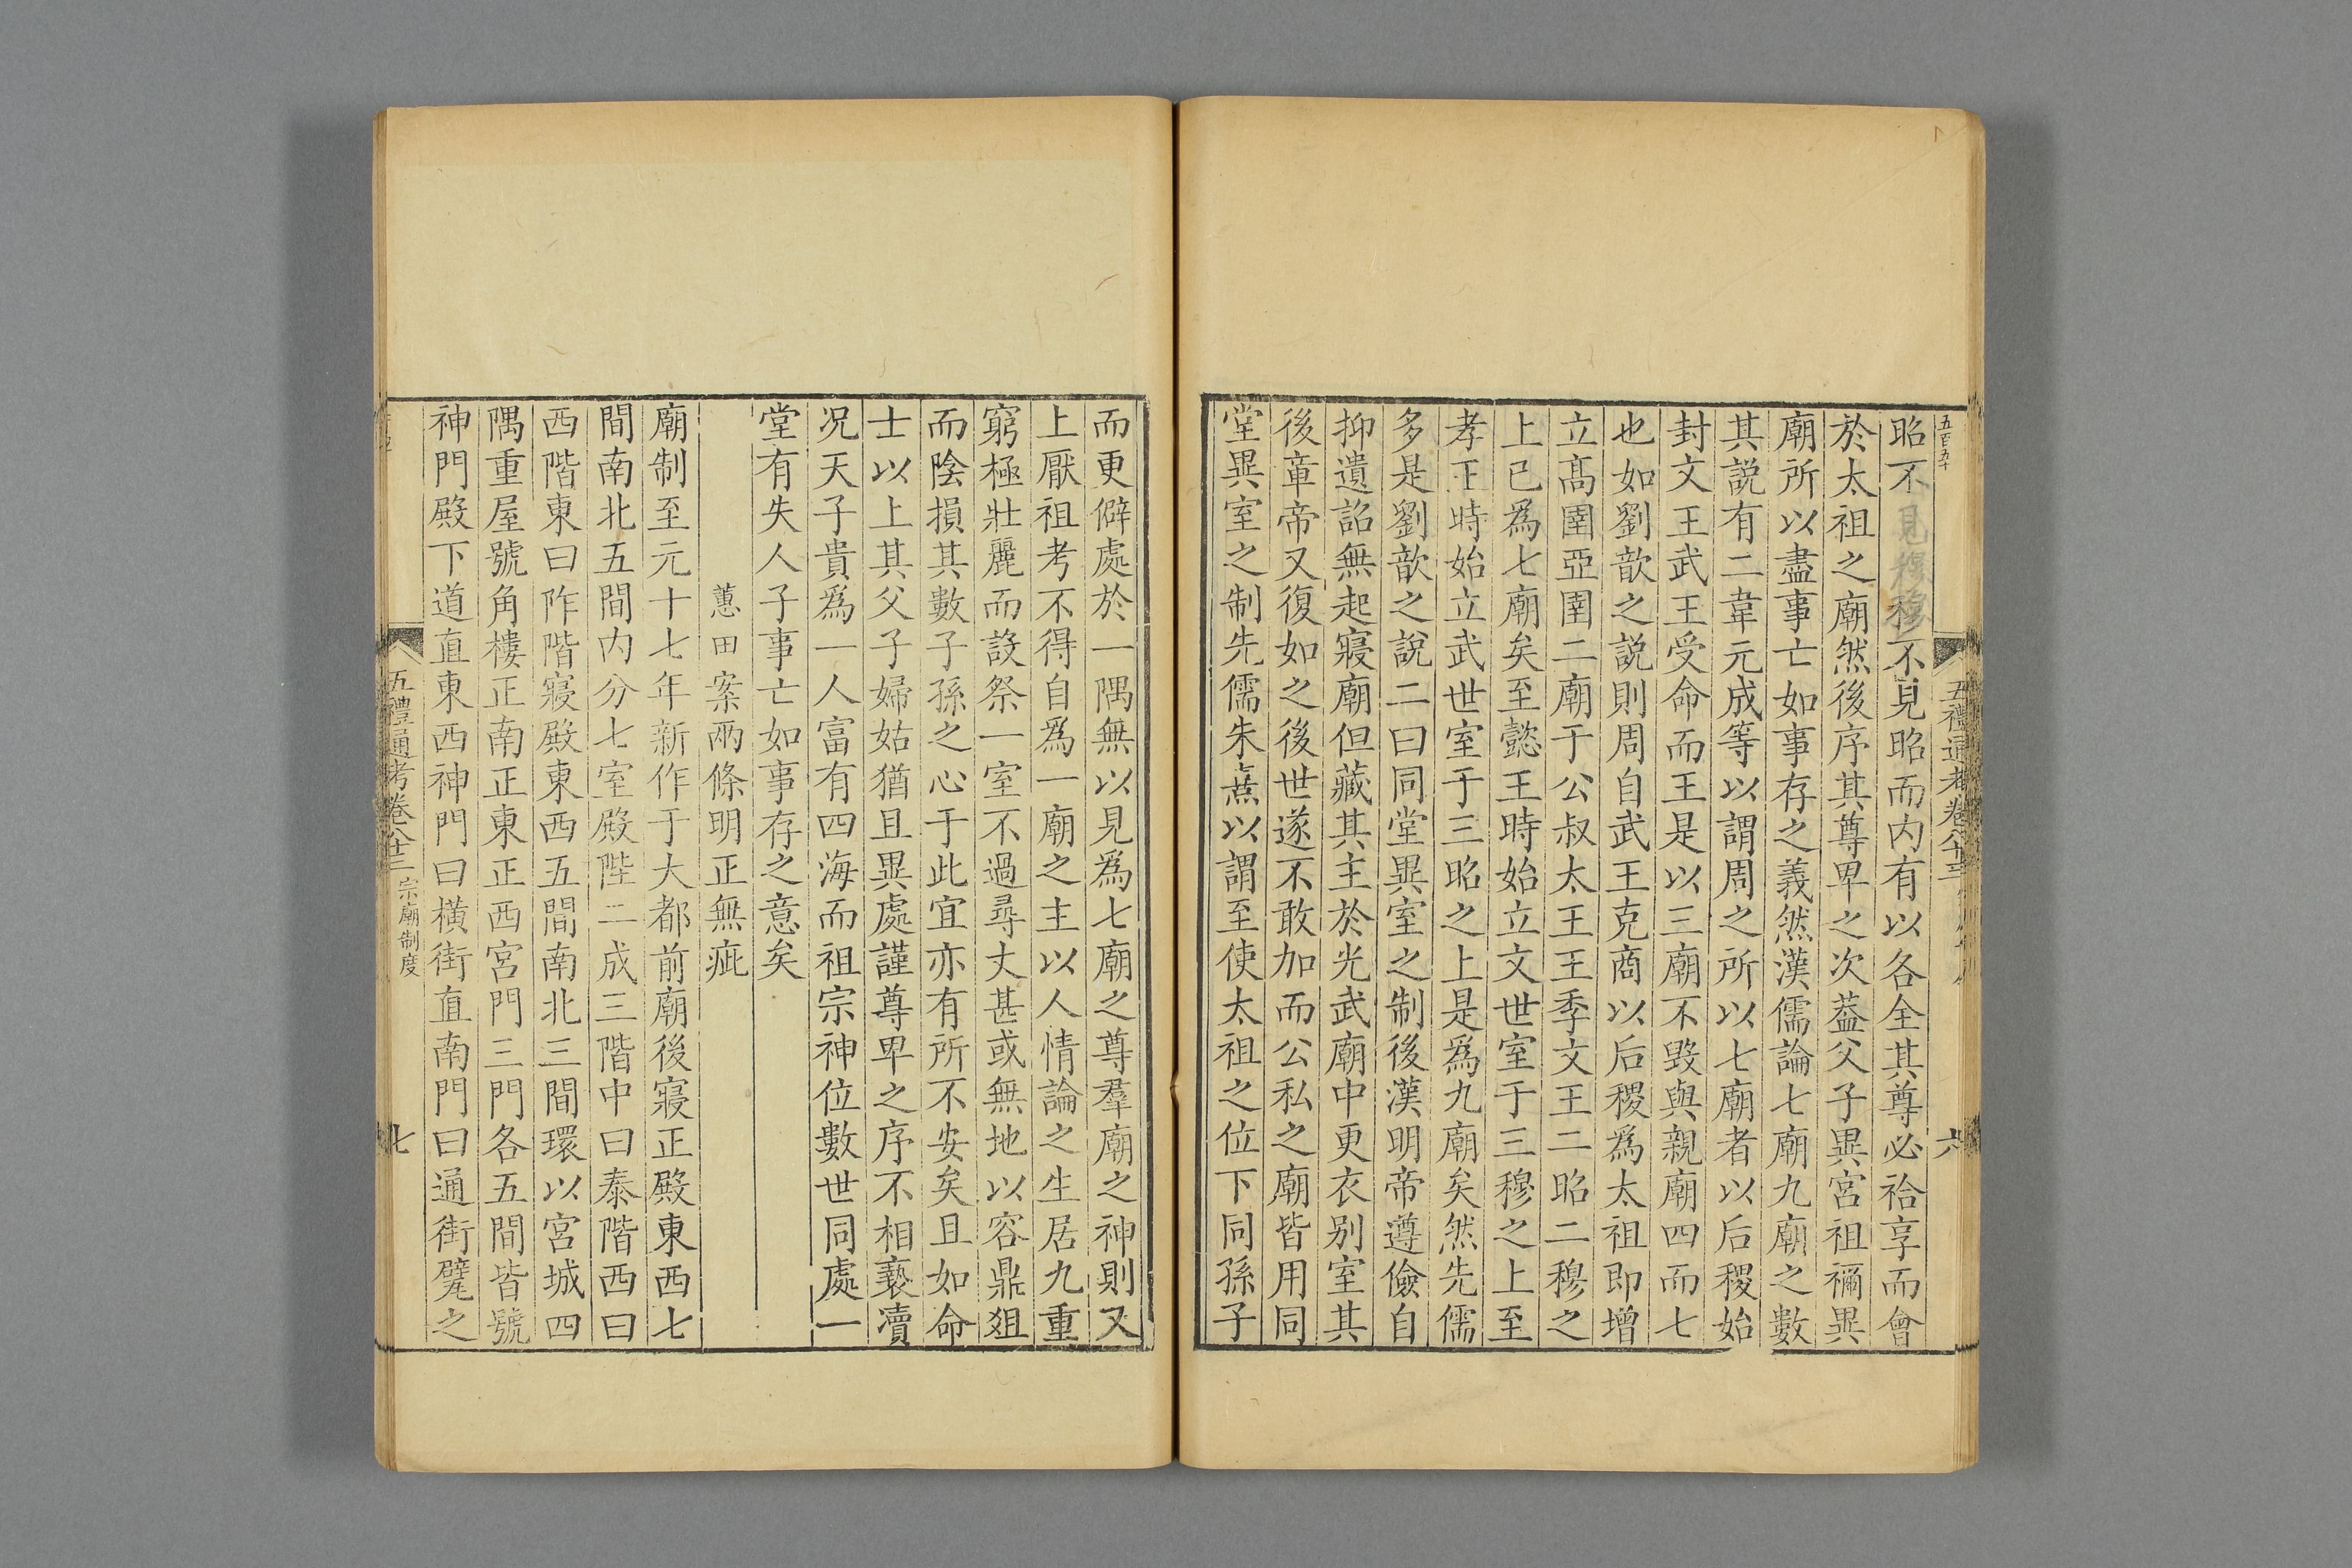 五百五十
五禮通考卷八十二
六
昭不見穆穆不見昭而内有以各全其尊必祫享而會
於太祖之廟然後序其尊卑之次葢父子異宮祖禰異
廟所以盡事亡如事存之義然漢儒論七廟九廟之數
其説有二韋元成等以謂周之所以七廟者以后稷始
封文王武王受命而王是以三廟不毁與親廟四而七
也如劉歆之説則周自武王克商以后稷為太祖即增
立髙圉亞圉二廟于公叔太王王季文王二昭二穆之
上已爲七廟矣至懿王時始立文世室于三穆之上至
孝王時始立武世室于三昭之上是爲九廟矣然先儒
多是劉歆之說二曰同堂異室之制後漢明帝遵儉自
抑遺詔無起寢廟但藏其主於光武廟中更衣别室其
後章帝亦又復如之後世遂不敢加而公私之廟皆用同
堂異室之制先儒朱熹以謂至使太祖之位下同孫子
而更僻處於一隅無以見爲七廟之尊羣廟之神則又
上厭祖考不得自爲一廟之主以人情論之生居九重
窮極壯麗而設祭一室不過尋丈甚或無地以容鼎俎
而陰損其數子孫之心于此宜亦有所不安矣且如命
士以上其父子婦姑猶且異處謹尊卑之序不相䙝瀆
况天子貴爲一人富有四海而祖宗神位數世同處一
堂有失人子事亡如事存之意矣
蕙田案兩條明正無疵
廟制至元十七年新作于大都前廟後寢正殿東西七
間南北五間内分七室殿陛二成三階中曰泰階西曰
西階東曰阼階寢殿東西五間南北三間環以宮城四
隅重屋號角樓正南正東正西宮門三門各五間皆號
神門殿下道直東西神門曰横街直南門曰通街甓之
五禮通考卷八十二 宗廟制度
七